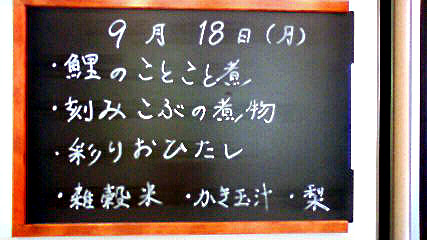 9月18日(月)
・鯉のことこと煮
・刻みこぶの煮物
・彩りおひたし
・雑穀米 ・かき玉汁 ・梨